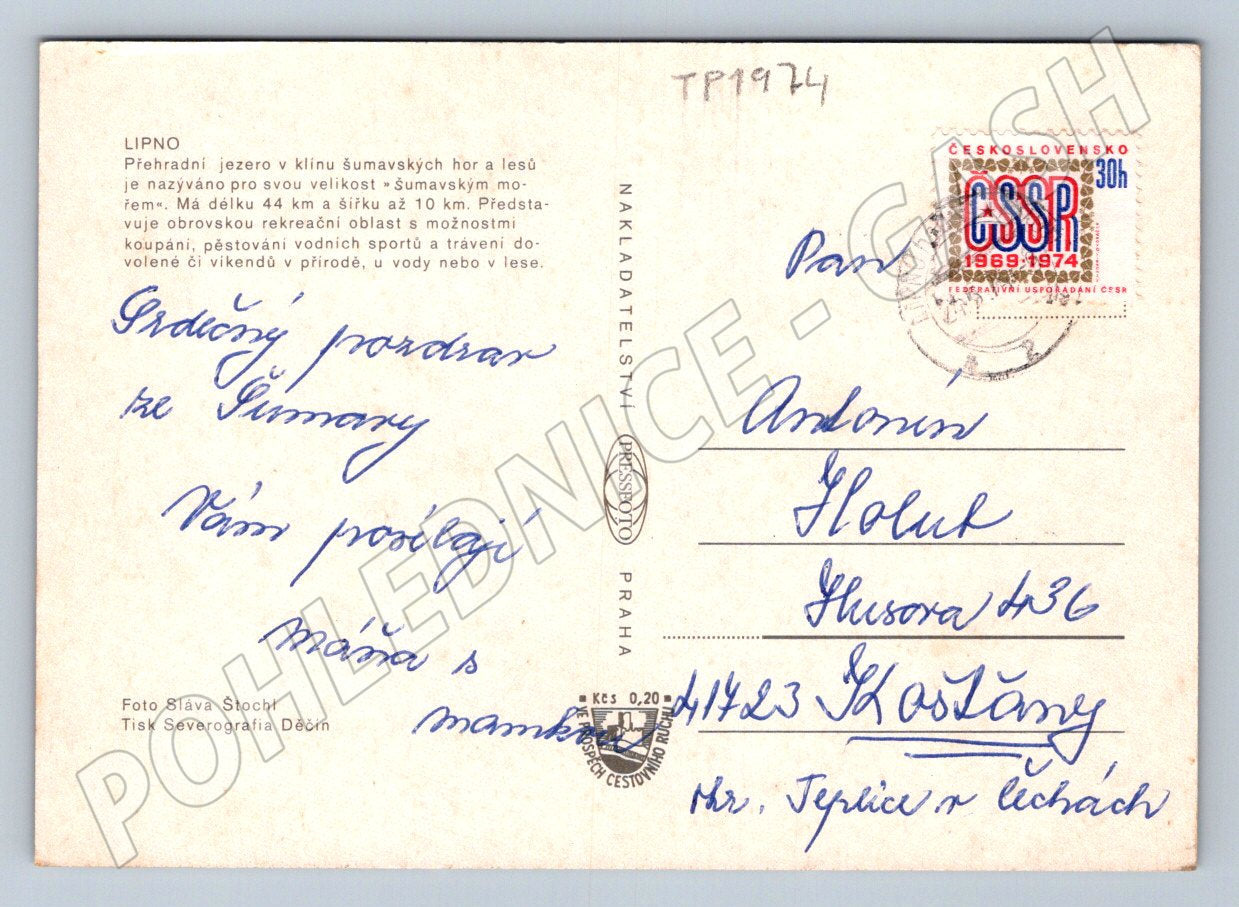 TP1974
LIPNO
Přehradní jezero v klínu šumavských hor a lesů
je nazýváno pro svou velikost »Šumavským mo-
řem«. Má délku 44 km a šířku až 10 km. Předsta-
vuje obrovskou rekreační oblast s možnostmi
koupání, pěstování vodních sportů a trávení do-
volené či víkendů v přírodě, u vody nebo v lese.
Srdečný pozdrav
ze Šumavy
Vám posílají
Máňa s
mamkou
Foto Sláva Štochl
Tisk Severografia Děčín
NAKLADATELSTVÍ
PRESSFOTO
PRAHA
Kčs 0,20
VE PROSPĚCH CESTOVNÍHO RUCHU
ČESKOSLOVENSKO
30h
ČSSR
1969-1974
FEDERATIVNÍ USPOŘÁDÁNÍ ČSSR
Pan
Antonín
Holut
Husova 436
41723 Košťany
okr. Teplice v Čechách
POHLEDNICE - GASH